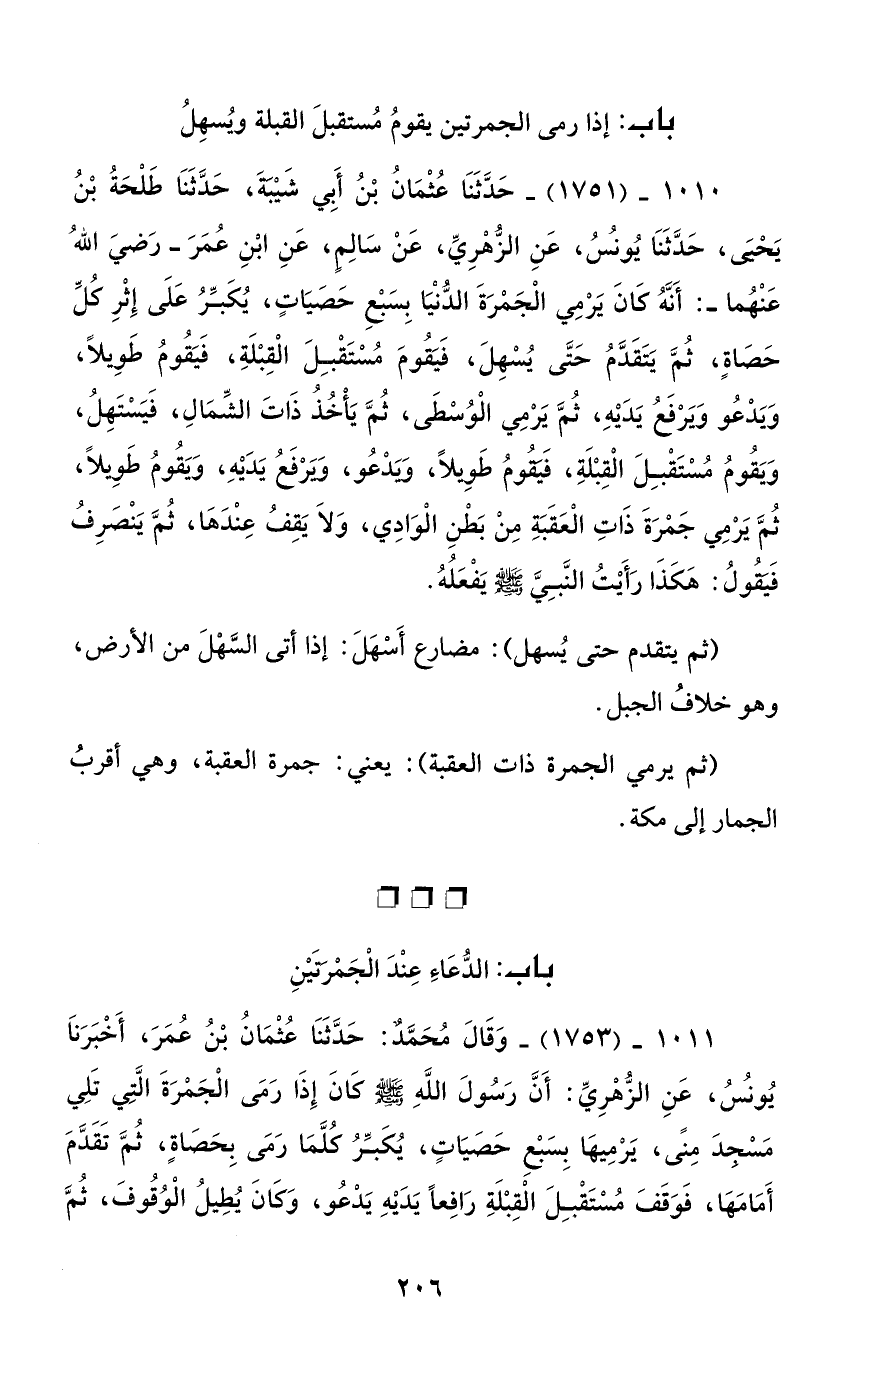 باب: إذا رمى الجمرتين يقومُ مُستقبلَ القبلة ويُسهِلُ
١٠١٠ ـ (١٧٥١) ـ حَدَّثَنَا عُثْمَانُ بْنُ أَبِي شَيْبَةَ، حَدَّثَنَا طَلْحَةُ بْنُ
يَحْيَى، حَدَّثَنَا يُونُسُ، عَنِ الزُّهْرِيِّ، عَنْ سَالِمٍ، عَنِ ابْنِ عُمَرَ ـ رَضِيَ اللهُ
عَنْهُما ـ: أَنَّهُ كَانَ يَرْمِي الْجَمْرَةَ الدُّنْيَا بِسَبْعِ حَصَيَاتٍ، يُكَبِّرُ عَلَى إِثْرِ كُلِّ
حَصَاةٍ، ثُمَّ يَتَقَدَّمُ حَتَّى يُسْهِلَ، فَيَقُومَ مُسْتَقْبِلَ الْقِبْلَةِ، فَيَقُومُ طَوِيلاً،
وَيَدْعُو وَيَرْفَعُ يَدَيْهِ، ثُمَّ يَرْمِي الْوُسْطَى، ثُمَّ يَأْخُذُ ذَاتَ الشِّمَالِ، فَيَسْتَهِلُ،
وَيَقُومُ مُسْتَقْبِلَ الْقِبْلَةِ، فَيَقُومُ طَوِيلاً، وَيَدْعُو، وَيَرْفَعُ يَدَيْهِ، وَيَقُومُ طَوِيلاً،
ثُمَّ يَرْمِي جَمْرَةَ ذَاتِ الْعَقَبَةِ مِنْ بَطْنِ الْوَادِي، وَلاَ يَقِفُ عِنْدَهَا، ثُمَّ يَنْصَرِفُ
فَيَقُولُ: هَكَذَا رَأَيْتُ النَّبِيَّ ﷺ يَفْعَلُهُ.
(ثم يتقدم حتى يُسهل): مضارع أَسْهَلَ: إذا أتى السَّهْلَ من الأرض،
وهو خلافُ الجبل.
(ثم يرمي الجمرة ذات العقبة): يعني: جمرة العقبة، وهي أقربُ
الجمار إلى مكة.
❒ ❒ ❒
باب: الدُّعَاءِ عِنْدَ الْجَمْرَتَيْنِ
١٠١١ ـ (١٧٥٣) ـ وَقَالَ مُحَمَّدٌ: حَدَّثَنَا عُثْمَانُ بْنُ عُمَرَ، أَخْبَرَنَا
يُونُسُ، عَنِ الزُّهْرِيِّ: أَنَّ رَسُولَ اللَّهِ ﷺ كَانَ إِذَا رَمَى الْجَمْرَةَ الَّتِي تَلِي
مَسْجِدَ مِنًى، يَرْمِيهَا بِسَبْعِ حَصَيَاتٍ، يُكَبِّرُ كُلَّمَا رَمَى بِحَصَاةٍ، ثُمَّ تَقَدَّمَ
أَمَامَهَا، فَوَقَفَ مُسْتَقْبِلَ الْقِبْلَةِ رَافِعاً يَدَيْهِ يَدْعُو، وَكَانَ يُطِيلُ الْوُقُوفَ، ثُمَّ
٢٠٦